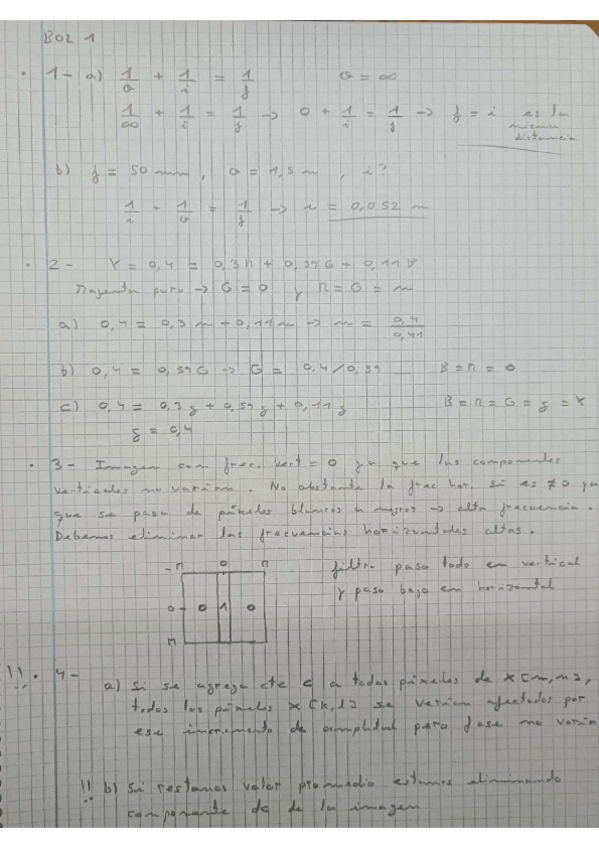 BOL 1
· 1- a) 1/o + 1/i = 1/f    o = ∞
1/∞ + 1/i = 1/f -> 0 + 1/i = 1/f -> f = i es la misma distancia
b) f = 50 mm, o = 1,5 m, i?
1/i + 1/o = 1/f -> i = 0,052 m
· 2- Y = 0,4 = 0,3R + 0,59G + 0,11B
Magenta puro -> G=0 y R=G=m
a) 0,4 = 0,3m + 0,11m -> m = 0,4/0,41
b) 0,4 = 0,59G -> G = 0,4/0,59    B=R=0
c) 0,4 = 0,3g + 0,59g + 0,11g    B=R=G=g=Y
g = 0,4
· 3- Imagen con frec. vert = 0 ya que las componentes
verticales no varian. No obstante la frec hor. si es ≠0 ya
que se pasa de pixeles blancos a negros -> alta frecuencia.
Debemos eliminar las frecuencias horizontales altas.
-π 0 π
filtro pasa todo en vertical
0 0 1 0
y paso bajo en horizontal
π
!! · 4-
a) Si se agrega cte c a todos píxeles de x[m,n],
todos los píxels x[k,l] se verían afectados por
ese incremento de amplitud pero fase no varía
!! b) Si restamos valor promedio estamos eliminando
componente dc de la imagen